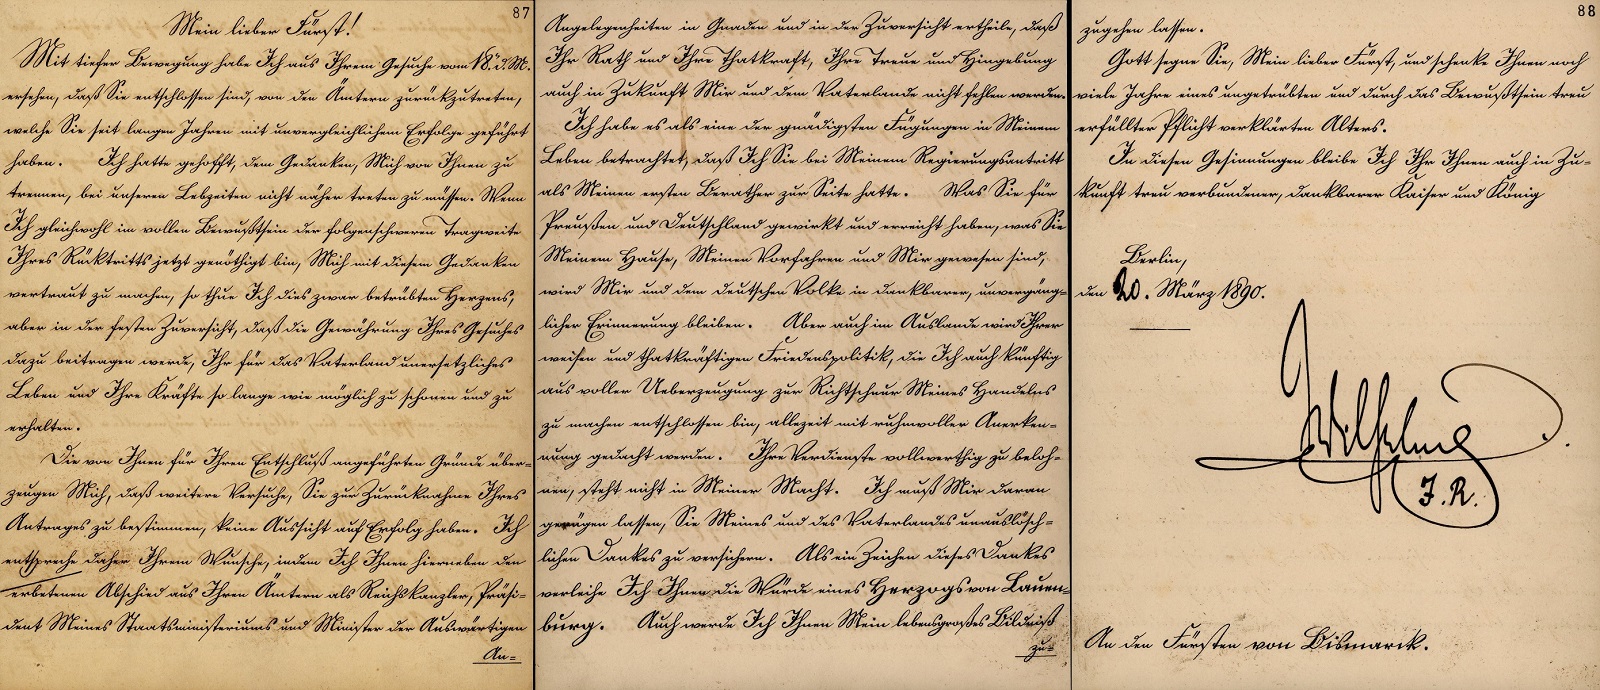 87
Mein lieber Fürst!
Mit tiefer Bewegung habe Ich aus Ihrem Gesuche vom 18. d. M.
ersehen, daß Sie entschlossen sind, von den Ämtern zurückzutreten,
welche Sie seit langen Jahren mit unvergleichlichem Erfolge geführt
haben. Ich hatte gehofft, dem Gedanken, Mich von Ihnen zu
trennen, bei unseren Lebzeiten nicht näher treten zu müssen. Wenn
Ich gleichwohl im vollen Bewußtsein der folgenschweren Tragweite
Ihres Rücktritts jetzt genöthigt bin, Mich mit diesem Gedanken
vertraut zu machen, so thue Ich dies zwar betrübten Herzens,
aber in der festen Zuversicht, daß die Gewährung Ihres Gesuches
dazu beitragen werde, Ihr für das Vaterland unersetzliches
Leben und Ihre Kräfte so lange wie möglich zu schonen und zu
erhalten.
Die von Ihnen für Ihren Entschluß angeführten Gründe über-
zeugen Mich, daß weitere Versuche, Sie zur Zurücknahme Ihres
Antrages zu bestimmen, keine Aussicht auf Erfolg haben. Ich
entspreche daher Ihrem Wunsche, indem Ich Ihnen hierneben den
erbetenen Abschied aus Ihren Ämtern als Reichskanzler, Präsi-
dent Meines Staatsministeriums und Minister der Auswärtigen
An-
Angelegenheiten in Gnaden und in der Zuversicht ertheile, daß
Ihr Rath und Ihre Thatkraft, Ihre Treue und Hingebung
auch in Zukunft Mir und dem Vaterlande nicht fehlen werden.
Ich habe es als eine der gnädigsten Fügungen in Meinem
Leben betrachtet, daß Ich Sie bei Meinem Regierungsantritt
als Meinen ersten Berather zur Seite hatte. Was Sie für
Preußen und Deutschland gewirkt und erreicht haben, was Sie
Meinem Hause, Meinen Vorfahren und Mir gewesen sind,
wird Mir und dem deutschen Volke in dankbarer, unvergäng-
licher Erinnerung bleiben. Aber auch im Auslande wird Ihrer
weisen und thatkräftigen Friedenspolitik, die Ich auch künftig
aus voller Ueberzeugung zur Richtschnur Meines Handelns
zu machen entschlossen bin, allezeit mit ruhmvoller Anerken-
nung gedacht werden. Ihre Verdienste vollwerthig zu beloh-
nen, steht nicht in Meiner Macht. Ich muß Mir daran
genügen lassen, Sie Meines und des Vaterlandes unauslösch-
lichen Dankes zu versichern. Als ein Zeichen dieses Dankes
verleihe Ich Ihnen die Würde eines Herzogs von Lauen-
burg. Auch werde Ich Ihnen Mein lebensgroßes Bildniß
zu-
88
zugehen lassen.
Gott segne Sie, Mein lieber Fürst, und schenke Ihnen noch
viele Jahre eines ungetrübten und durch das Bewußtsein treu
erfüllter Pflicht verklärten Alters.
In diesen Gesinnungen bleibe Ich Ihr Ihnen auch in Zu-
kunft treu verbundener, dankbarer Kaiser und König
Berlin,
den 20. März 1890.
Wilhelm
I. R.
An den Fürsten von Bismarck.